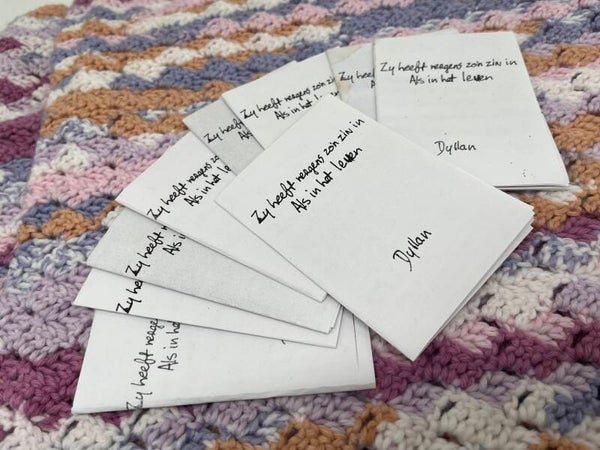 Zy heeft nergens zo'n zin in
Als in het leven
Dyllan
Zy heeft
Als
Zy heeft nergens zo'n zin in
Als in
Zy heeft nergens
Als
Zy heeft nergens zo'n zin in
Als in het leven
Dyllan
Zy heeft nergens
Als in het
Zy he
Als in
Zy he
Zy heeft
Als in het